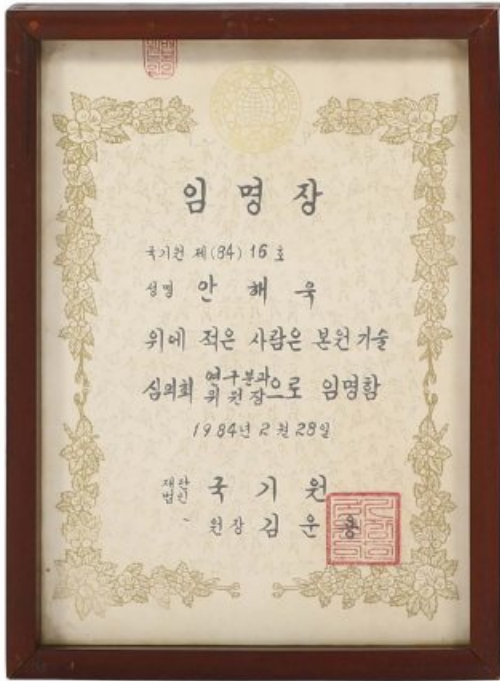 임명장
국기원 제(84) 16 호
성명 안 해 욱
위에 적은 사람은 본원 기술
심의회 연구분과
위원장으로 임명함
1984년 2월 28일
재단
법인 국 기 원
원장 김 운 용